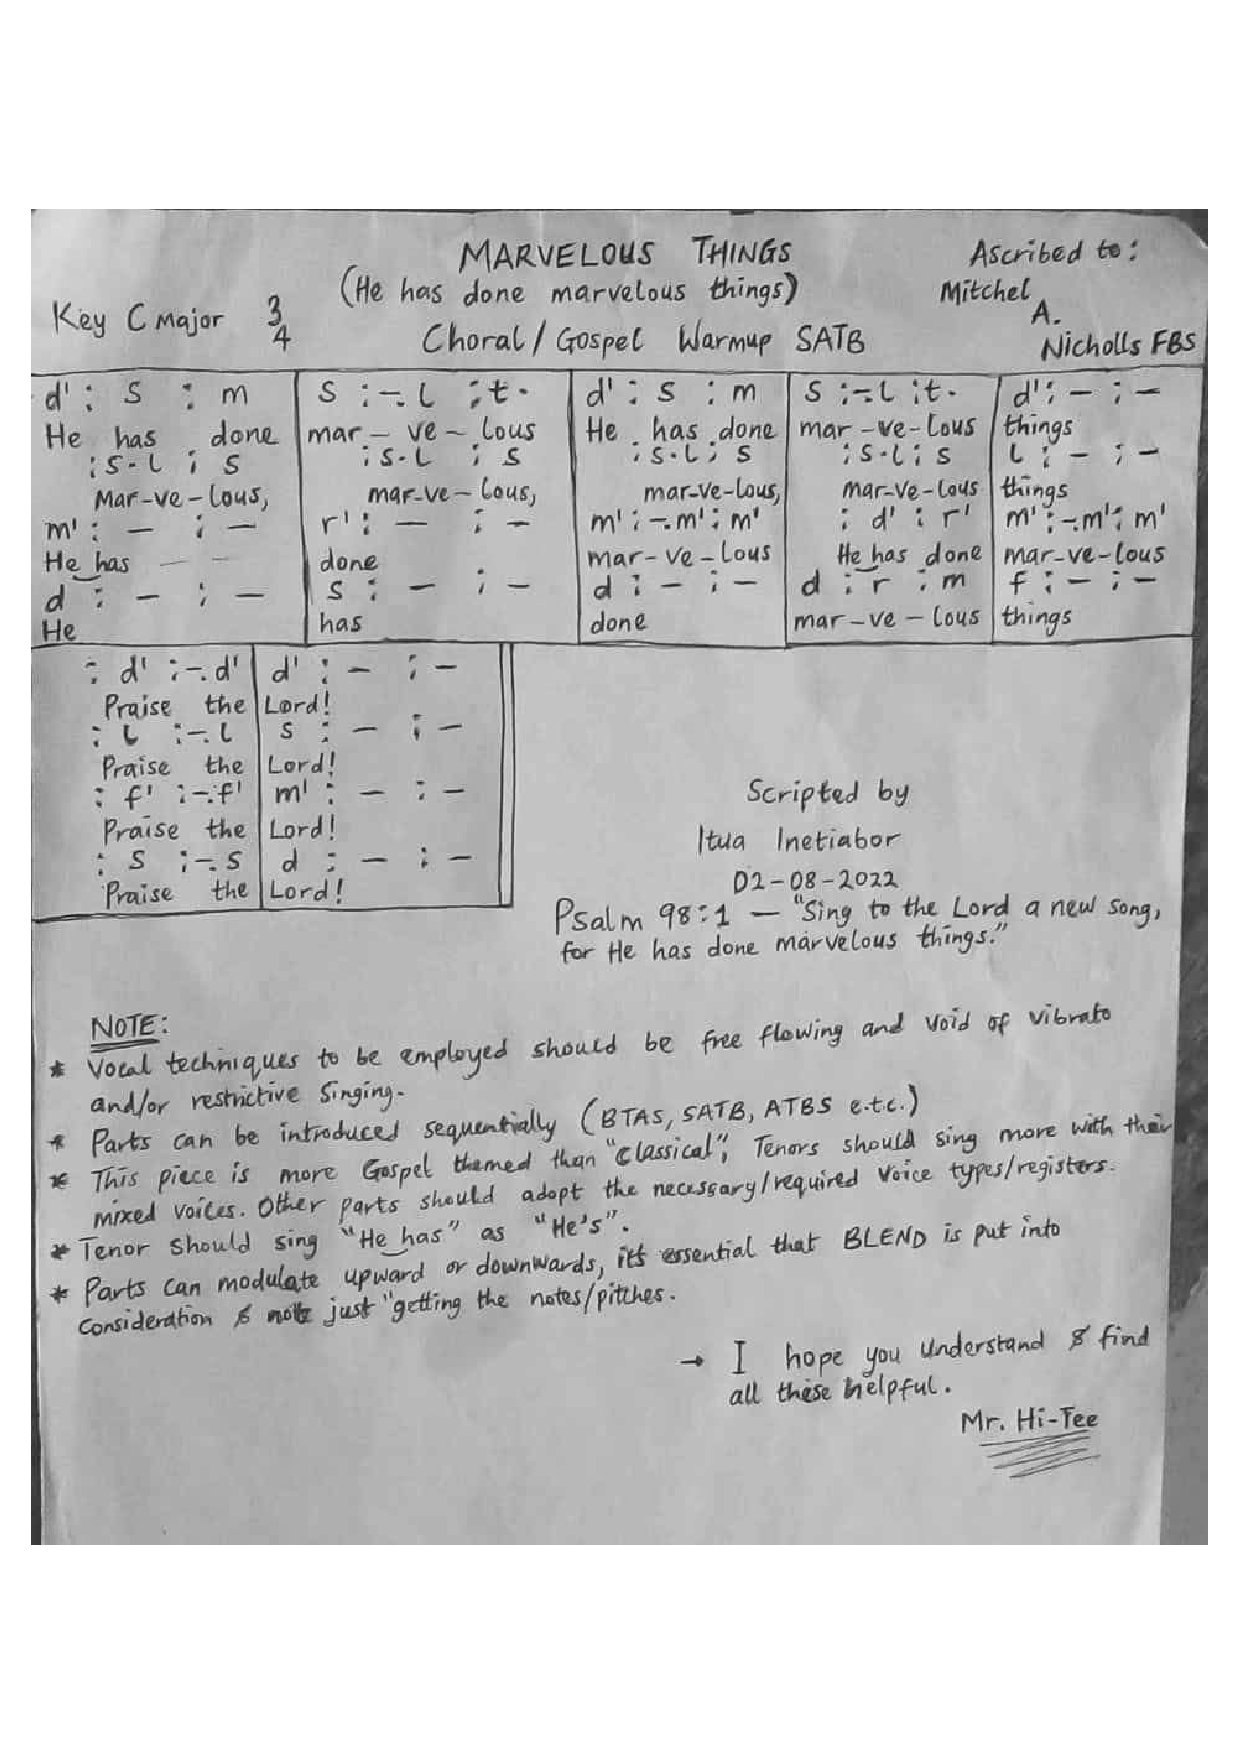 MARVELOUS THINGS
(He has done marvelous things)
Choral / Gospel Warmup SATB
Key C Major 3/4
Ascribed to:
Mitchel
A.
Nicholls FBS
d' : s : m | s : -. l : t . | d' : s : m | s : -. l : t . | d' : - : -
He has done | mar - ve - lous | He has done | mar - ve - lous | things
: s . l : s | : s . l : s | : s . l : s | : s . l : s | l : - : -
Mar-ve-lous, | mar-ve-lous, | mar-ve-lous, | mar-ve-lous | things
m' : - : - | r' : - : - | m' : -. m' : m' | : d' : r' | m' : -. m' : m'
He has - - | done | mar-ve-lous | He has done | mar-ve-lous
d : - : - | s : - : - | d : - : - | d : r : m | f : - : -
He | has | done | mar-ve-lous | things
: d' : -. d' | d' : - : -
Praise the | Lord!
: l : -. l | s : - : -
Praise the | Lord!
: f' : -. f' | m' : - : -
Praise the | Lord!
: s : -. s | d : - : -
Praise the | Lord!
Scripted by
Itua Inetiabor
02-08-2022
Psalm 98:1 — "Sing to the Lord a new song,
for He has done marvelous things."
NOTE:
* Vocal techniques to be employed should be free flowing and void of vibrato
and/or restrictive singing.
* Parts can be introduced sequentially (BTAS, SATB, ATBS e.t.c.)
* This piece is more Gospel themed than "classical", Tenors should sing more with their
mixed voices. Other parts should adopt the necessary/required voice types/registers.
* Tenor should sing "He has" as "He's".
* Parts can modulate upward or downwards, it's essential that BLEND is put into
consideration & not just "getting the notes/pitches.
→ I hope you understand & find
all these helpful.
Mr. Hi-Tee